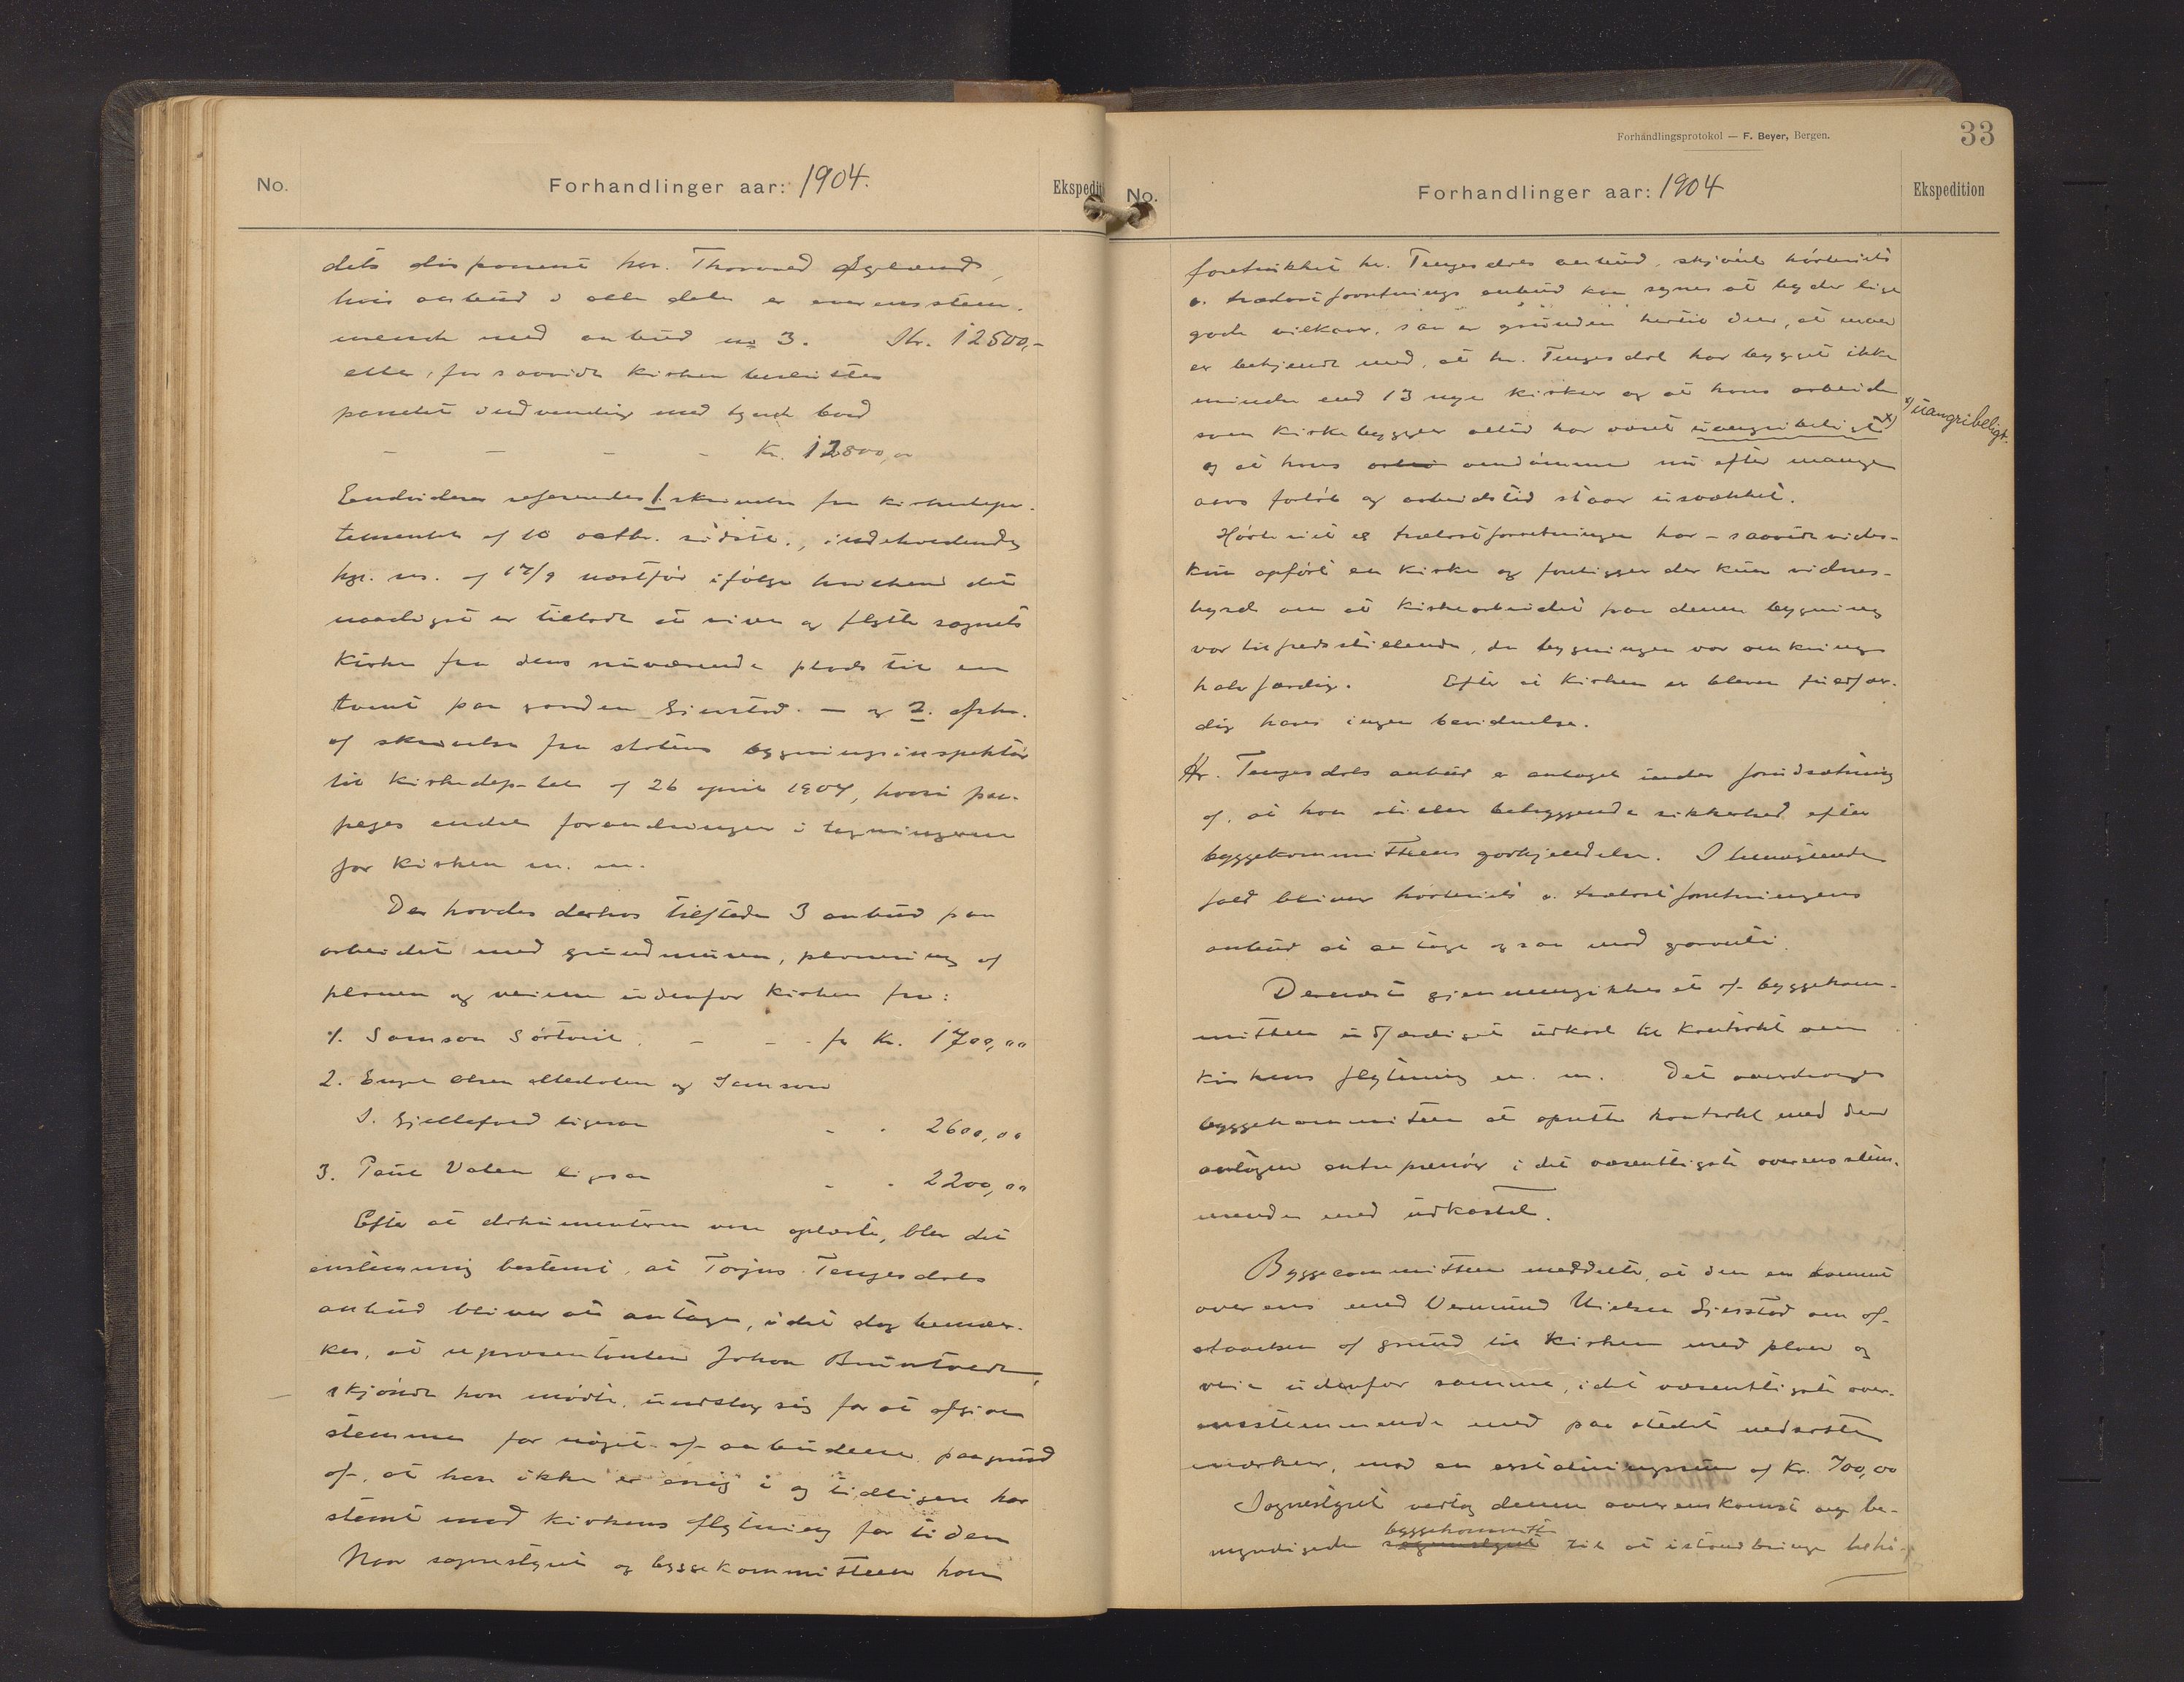 No.
Forhandlinger aar: 1904.
Ekspedit
dets disponent hr. Thorvald Øglænd,
hvis anbud i alle dele er overensstem-
mende med anbud no 3. Kr. 12500,-
eller, for saavidt kirken besluttes
panelet indvendig med tynde bord
- - - - Kr. 12800,00
Endvidere refereredes 1. skrivelse fra kirkedepar-
tementet af 10 octbr. sidstl., indeholdende
kgl. res. af 17/9 næstfør ifølge hvilken det
naadigst er tilladt at rive og flytte sognets
kirke fra dens nuværende plads til en
tomt paa gaarden Gjerstad. — og 2. afskr.
af skrivelse fra statens bygningsinspektør
til kirkedep-tet af 26 april 1904, hvori paa-
peges endel forandringer i tegningerne
for kirken m. m.
Der havdes derhos tilstede 3 anbud paa
arbeidet med grundmuren, planering af
planen og veiene udenfor kirken fra:
1. Samson Sørtveit. - - - for Kr. 1700,00
2. Engel Olsen og Samson
S. Gjellefald ligesaa - - 2600,00
3. Paul Valen ligesaa - - 2200,00
Efter at dokumenterne var oplæste, blev det
enstemmig bestemt, at Torjus Tengesdals
anbud bliver at antage, idet dog bemær-
kes, at repræsentanten Johan Bruntvedt,
skjøndt han mødte, undslog sig for at afgive
stemme for noget af anbudene paagrund
af, at han ikke er enig i og tidligere har
stemt mod kirkens flytning for tiden
Naar sognestyret og byggekommitteen har
Forhandlingsprotokol — F. Beyer, Bergen.
33
No.
Forhandlinger aar: 1904
Ekspedition
foretrukket hr. Tengesdals anbud, skjønt hørtveits
o. trælastforretnings anbud kan synes at byde lige
gode vilkaar, saa er grunden hertil den, at man
er bekjendt med, at hr. Tengesdal har bygget ikke
mindre end 13 nye kirker og at hans arbeide
som kirkebygger altid har været uangribeligt x)
x) uangribeligt.
og at hans omdømme nu efter mange
aars forløb og arbeidstid staar usvækket.
trælastforretningen har - saavidt vides -
kun opført en kirke og foreligger der kun vidnes-
byrd om at kirkearbeidet paa denne bygning
var tilfredsstillende, da bygningen var omkring
halvfærdig. Efter at kirken er bleven fuldfær-
dig haves ingen bevidnelse.
Hr. Tengesdals anbud er antaget under forudsætning
af, at han stiller betryggende sikkerhed efter
byggekommitteens godkjendelse. I benægtende
fald bliver o. trælastforretningens
anbud at antage ogsaa mod garanti.
Dernæst gjennemgikkes et af byggekom-
mitteen udfærdiget udkast til kontrakt om
kirkens flytning m. m. Det overdrages
byggekommitteen at oprette kontrakt med den
antagne entreprenør i det væsentligste overensstem-
mende med udkastet.
Byggecommitteen meddelte, at den er kommet
overens med Vermund Nielsen Gjerstad om af-
staaelsen af grund til kirken med plan og
veie udenfor samme, i det væsentligste over-
ensstemmende med paa stedet nedsatte
merker, mod en erstatningssum af Kr. 700,00
Sognestyret vedtog denne overenskomst og be-
byggekommitt
myndigede sognestyret til at istandbringe behø-